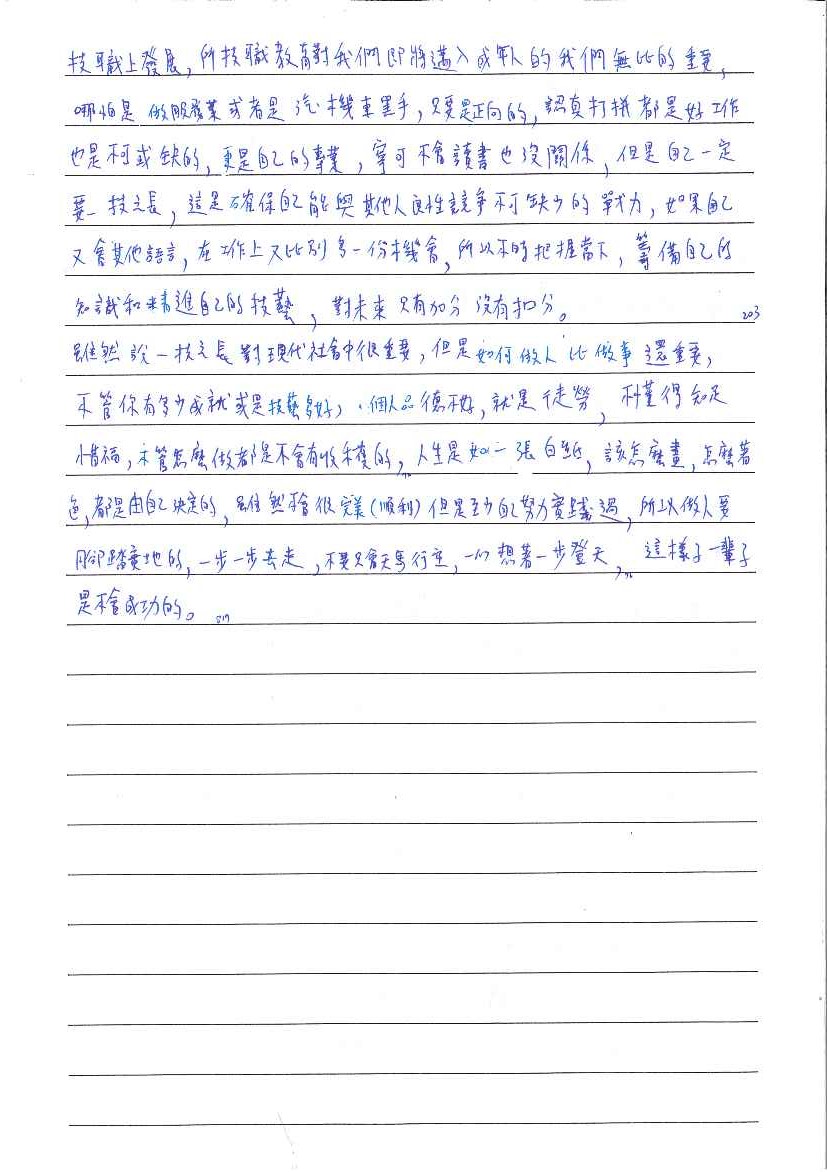 技職上發展，所技職教育對我們即將邁入成年人的我們無比的重要，
哪怕是做服務業或者是汽機車黑手，只要是正向的，認真打拼都是好工作
也是不可或缺的，更是自己的專業，寧可不會讀書也沒關係，但是自己一定
要一技之長，這是確保自己能與其他人良性競爭不可缺少的戰力，如果自己
又會其他語言，在工作上又比別多一份機會，所以不時把握當下，籌備自己的
知識和精進自己的技藝，對未來只有加分沒有扣分。 203
雖然說一技之長對現代社會中很重要，但是"如何做人"比做事還重要，
不管你有多少成就或是技藝多好，個人品德不好，就是徒勞，不懂得知足
惜福，不管怎麼做都是不會有收穫的，人生是如一張白紙，該怎麼畫，怎麼著
色，都是由自己決定的，雖然不會很完美(順利)但是至少自己努力實踐過，所以做人要
腳踏實地的，一步一步去走，不要只會天馬行空，一心想著一步登天，這樣子一輩子
是不會成功的。